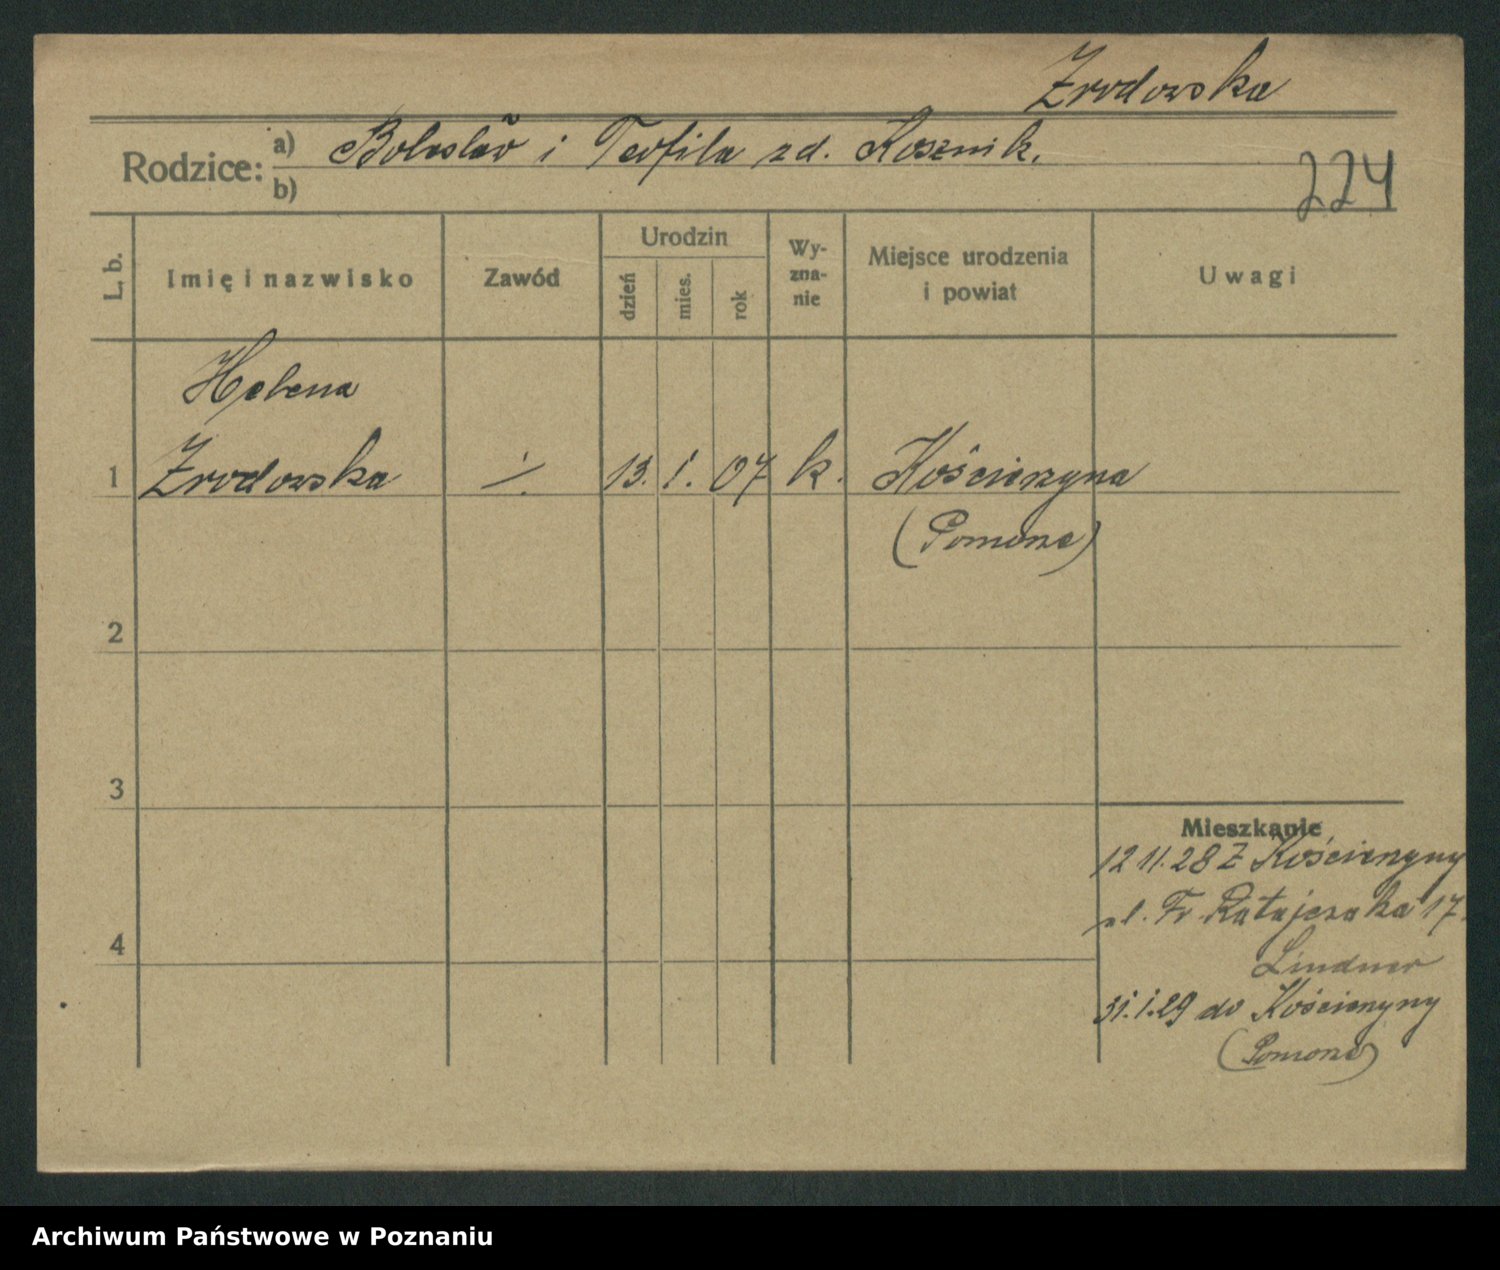 Zrodowska
Rodzice: a) Bolesław i Teofila zd. Kosznik.
b)
224
L. b.
Imię i nazwisko
Zawód
Urodzin
dzień
mies.
rok
Wy-
zna-
nie
Miejsce urodzenia
i powiat
Uwagi
Helena
1 Zrodowska ·/. 13. 1. 07 k. Kościerzyna
(Pomorze)
2
3
Mieszkanie
12 11. 28 Z Kościerzyny
ul. Fr. Ratajczaka 17.
4
Lindner
31. 1. 29 do Kościerzyny
(Pomorze)
Archiwum Państwowe w Poznaniu